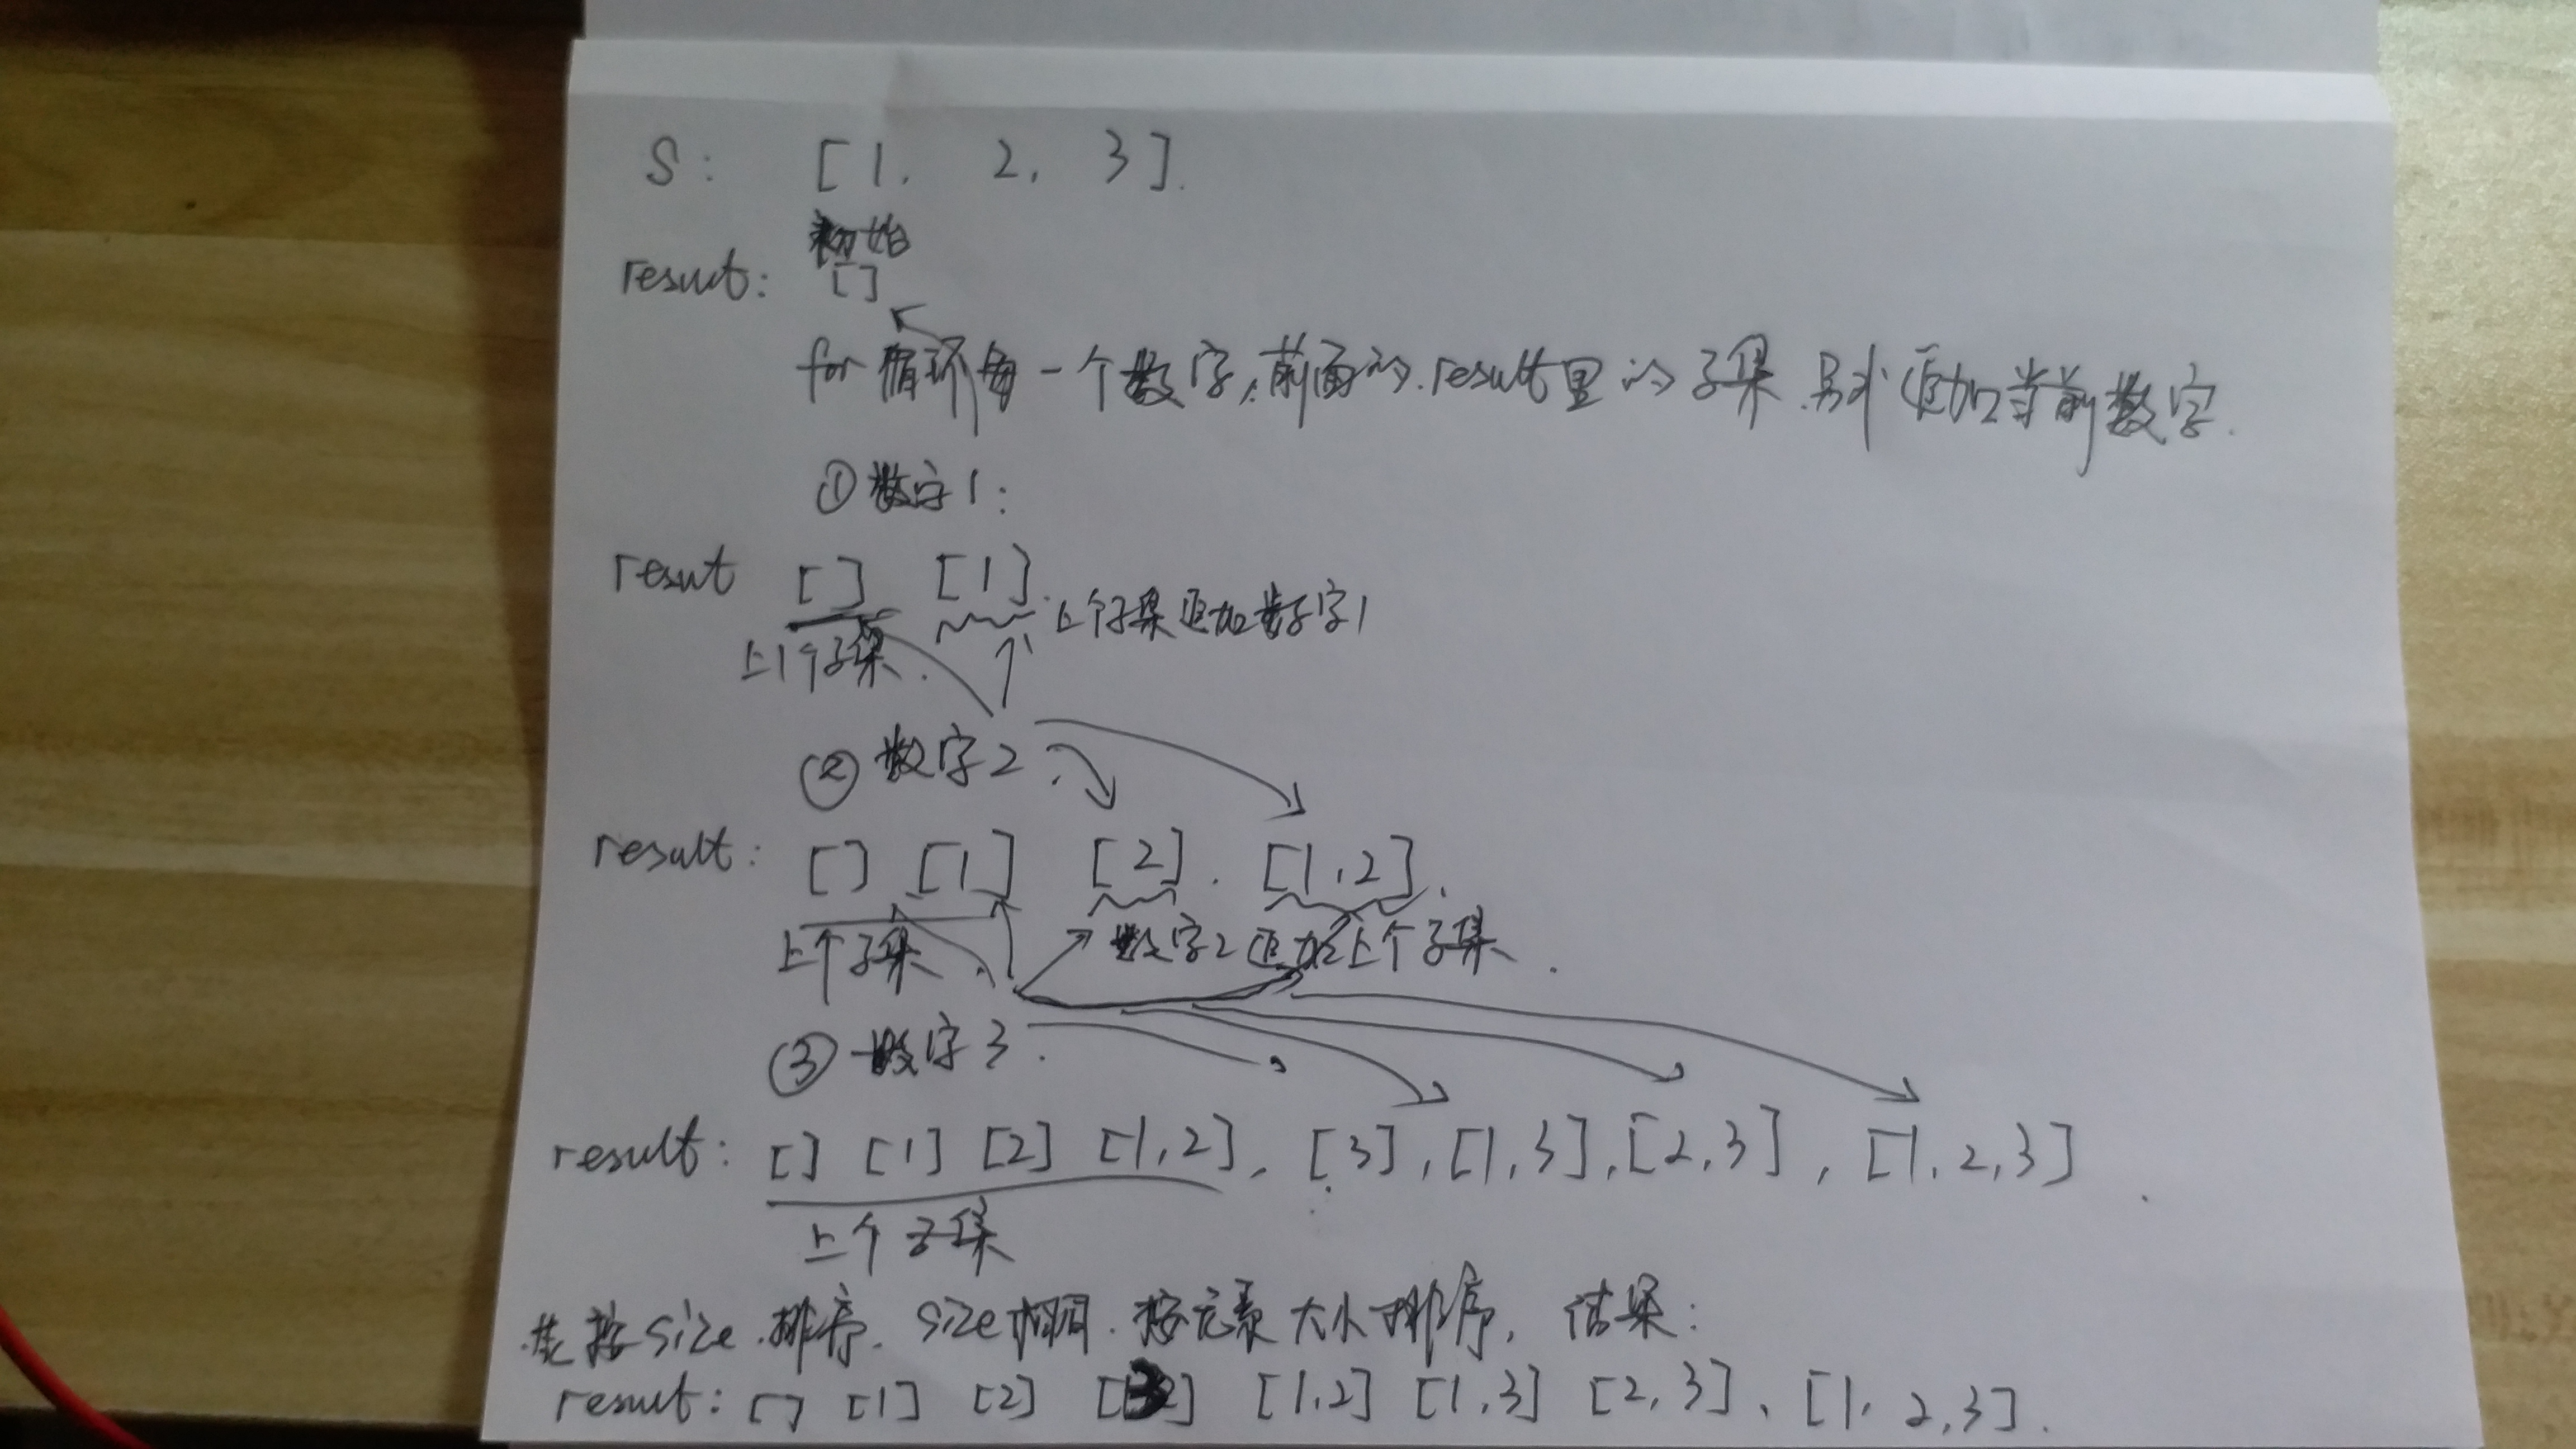 S: [1. 2, 3].
result: 初始 []
for 循环每一个数字, 前面的 result 里的子集 另外追加当前数字.
① 数字1:
result [] [1]
上个子集. 上个子集追加数字1
② 数字2.
result: [] [1] [2]. [1,2]
上个子集. 数字2追加上个子集.
③ 数字3.
result: [] [1] [2] [1,2], [3], [1,3], [2,3], [1,2,3]
上个子集
先按size排序. size相同. 按元素大小排序. 结果:
result: [] [1] [2] [3] [1,2] [1,3] [2,3], [1,2,3].